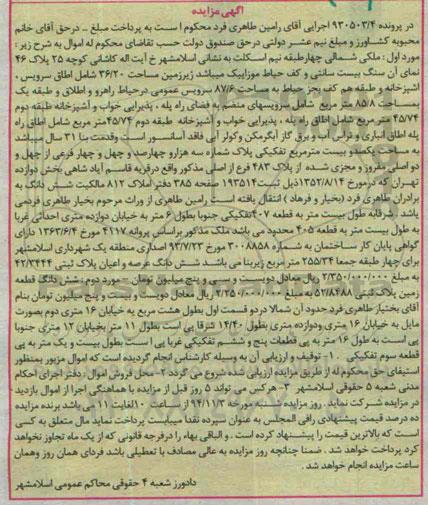 آگهی مزایده
در پرونده ۹۳۰۵۰۳/۴ اجرایی آقای رامین طاهری فرد محکوم است به پرداخت مبلغ ... درحق آقای خانم
محبوبه کشاورز و مبلغ نیم عشر دولتی درحق صندوق دولت حسب تقاضای محکوم له اموال به شرح زیر :
مورد اول : ملکی شمالی چهارطبقه نیم اسکلت به نشانی اسلامشهر خ آیت اله کاشانی کوچه ۲۵ پلاک ۴۶
نمای آن سنگ بیست سانتی و کف حیاط موزاییک میباشد زیرزمین مساحت ۳۶/۲۰ شامل اطاق سرویس ،
آشپزخانه و طبقه هم کف بجز حیاط به مساحت ۸۷/۶ سرویس عمومی درحیاط راهرو و اطلاق و طبقه یک
بمساحت ۸۵/۸ متر مربع شامل سرویسهای منضم به فضای راه پله ، پذیرایی خواب و آشپزخانه طبقه دوم
۴۵/۷۴ متر مربع شامل اطاق راه پله ، پذیرایی خواب و آشپزخانه طبقه دوم ۴۵/۷۴متر مربع شامل اطاق راه
پله اطاق انباری و تراس آب و برق گاز آبگرمکن وکولر آبی فاقد آسانسور است وقدمت بنا ۳۱ سال میباشد
به مساحت یکصدو بیست مترمربع تفکیکی پلاک شماره سه هزارو چهارصد و چهل و چهار فرعی از چهل و
دو اصلی مفروز و مجزی شده از پلاک ۴۸۳ فرع از اصلی مذکور واقع درقریه قاسم آباد شاهی بخش دوازده
تهران که درمورخ ۱۳۵۲/۸/۱۴ذیل ثبت۱۹۳۵۱۴ صفحه ۳۸۵ دفتر املاک ۸۱۲ مالکیت شش دانگ به
برادران طاهری فرد (بختیار و فرهاد ) انتقال یافته است رامین طاهری از وراث مرحوم بختیار طاهری فردمی
باشد شرقابه طول بیست متر به قطعه ۴۰۷تفکیکی جنوبا بطول ۶ متر به خیابان دوازده متری احداثی غربا
به طول بیست متر به قطعه ۴۰۵ محدود می باشد ملک مذکور براساس پروانه ۴۱۱۷ مورخ ۱۳۶۳/۶/۴ دارای
گواهی پایان کار ساختمان به شماره ۳۰۰۸۸۵۸ مورخ ۹۳/۷/۲۳ اصداری منطقه یک شهرداری اسلامشهر
برای چهار طبقه جمعا ۲۵۵/۳۴ متر مربع زیربنا می باشد شش دانگ عرصه و اعیان پلاک ثبتی ۴۲/۳۴۴۴
به مبلغ ۲/۳۵۰/۰۰۰/۰۰۰ ریال معادل دویست و سی و پنج میلیون تومان ـ مورد دوم: شش دانگ قطعه
زمین پلاک ثبتی ۵۲/۸۴۸۸ به مبلغ ۲/۲۵۰/۰۰۰/۰۰۰ ریال معادل دویست و بیست و پنج میلیون تومان بنام
آقای بختیار طاهری فرد حدود آن شمالا در دو قسمت اول بطول هشت مربع به خیابان ۱۶ متری دوم بصورت
مایل به خیابان ۱۶ متری ودوازده متری بطول ۱۴/۴۰ شرقا پی است بطول ۱۱ متر بخیابان ۱۲ متری جنوبا
پی است به طول ۱۶ متر به پی قطعات پنج و ششم تفکیکی غربا پی است بطول بیست و یک متر به پی
قطعه سوم تفکیکی . ۱- توقیف و ارزیابی آن به وسیله کارشناس انجام گردیده است که اموال مزبور بمنظور
استیفای حق محکوم له از طریق مزایده ارزیابی شده شروع می گردد ۲- محل فروش اموال : دفتر اجرای احکام
مدنی شعبه ۵ حقوقی اسلامشهر ۳- هرکس می تواند ۵ روز قبل از مزایده با هماهنگی اجرا از اموال بازدید
در مزایده شرکت نماید . روز مزایده شنبه مورخه ۹۴/۱۱/۳ از ساعت ۱۰ لغایت ۱۱ می باشد برنده مزایده
ده درصد قیمت پیشنهادی رافی المجلس به عنوان سپرده نقدا میبایست پرداخت نماید مال متعلق به کسی
است که بالاترین قیمت را پیشنهاد کرده است . و الباقی بهاء را درفرجه قانونی که از یک ماه تجاوز نخواهد
کرد پرداخت خواهد شد . ضمنا چنانچه روز مزایده به عللی مصادف با تعطیلی باشد فردای همان روز وهمان
ساعت مزایده انجام خواهد شد .
دادورز شعبه ۴ حقوقی محاکم عمومی اسلامشهر